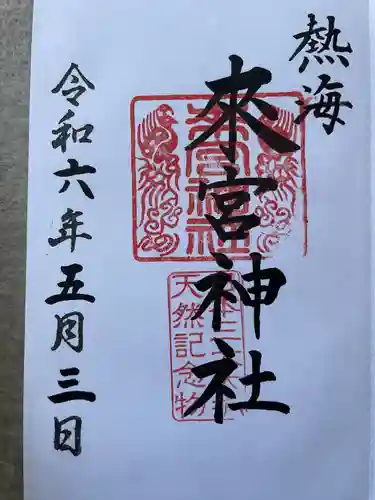 熱海
來宮神社
來宮神社
天然記念物
令和六年五月三日